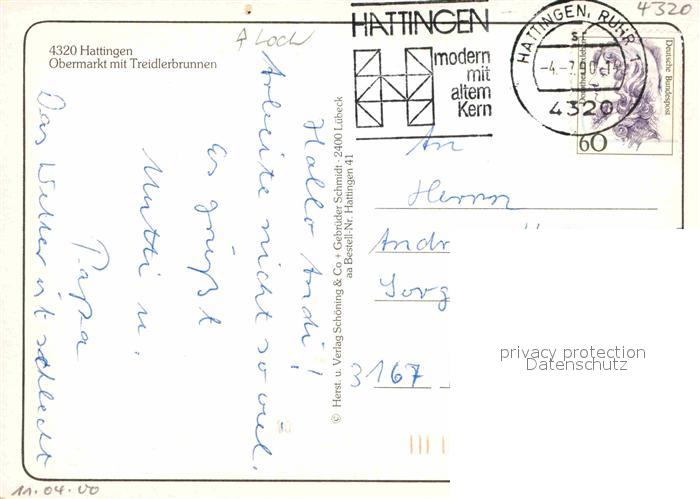 4320
A Loch
4320 Hattingen
Obermarkt mit Treidlerbrunnen
HATTINGEN
modern
mit
altem
Kern
HATTINGEN, RUHR 1
4320
Deutsche Bundespost
60
Hallo Andi!
Arbeite nicht so viel.
Es grüßt
Mutti u.
Papa
Das Wetter ist schlecht
© Herst. u. Verlag Schöning & Co + Gebrüder Schmidt · 2400 Lübeck
aa Bestell-Nr. Hattingen 41
An
Herrn
Andr
Sorg
3167
privacy protection
Datenschutz
11.04.00